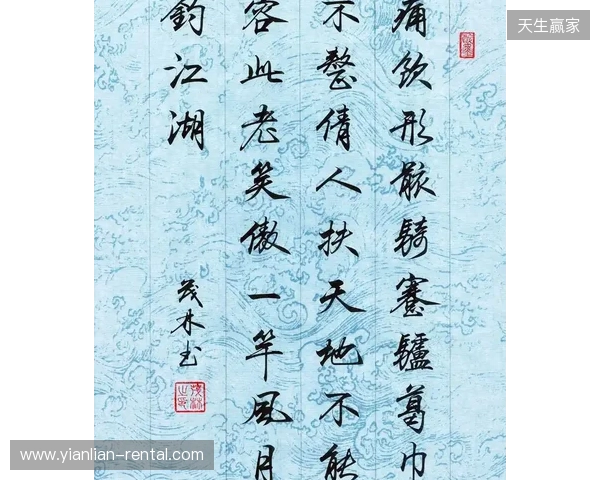 天生赢家
痛飲形骸騎蹇驢葛巾
不整倩人扶天地不能
容此老笑傲一竿風月
釣江湖
茂林书
www.yianlian-rental.com